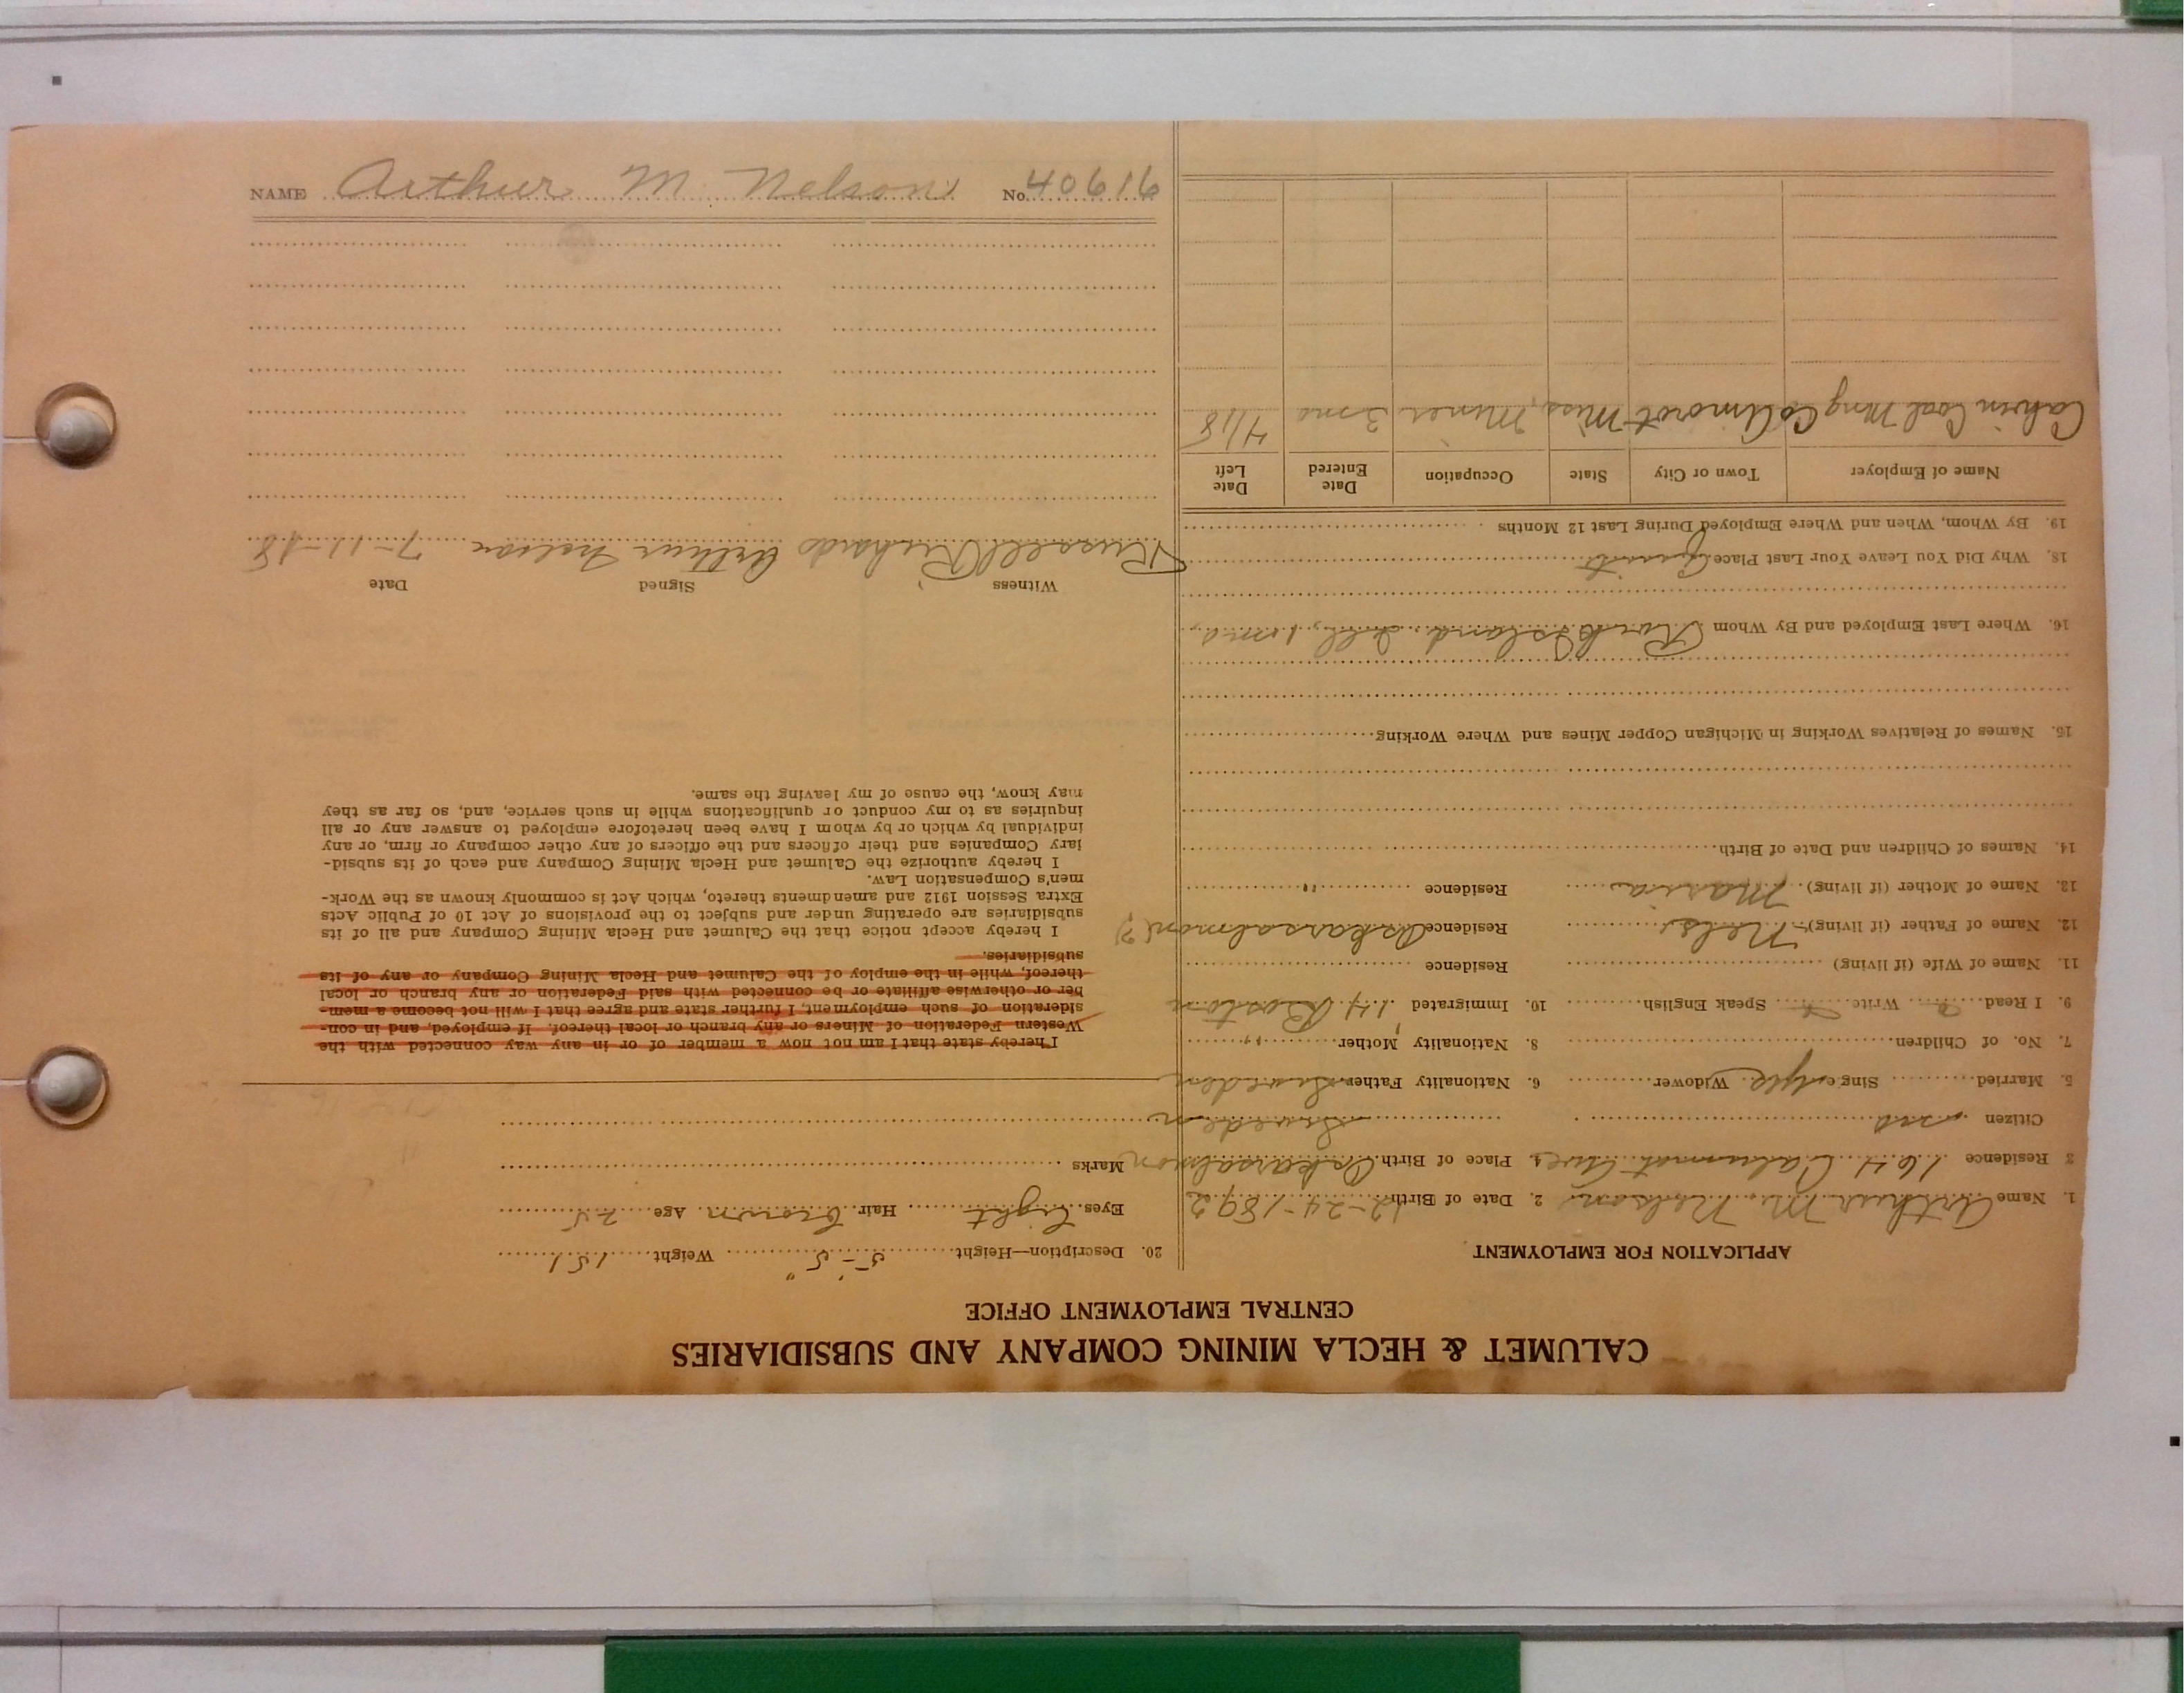 CALUMET & HECLA MINING COMPANY AND SUBSIDIARIES
CENTRAL EMPLOYMENT OFFICE
APPLICATION FOR EMPLOYMENT
1. Name Arthur M. Nelson 2. Date of Birth 12-24-1892
3 Residence 164 Calumet Ave, 4 Place of Birth Oskarsalmon
Citizen Sweden
5. Married Single Widower 6. Nationality Father Sweden
7. No. of Children 8. Nationality Mother "
9. I Read Write Speak English 10. Immigrated '14 Boston
11. Name of Wife (if living) Residence
12. Name of Father (if living) Nels Residence Oskarsalmon(?)
13. Name of Mother (if living) Maria Residence "
14. Names of Children and Date of Birth
15. Names of Relatives Working in Michigan Copper Mines and Where Working
16. Where Last Employed and By Whom Rock Island, Ill, 1 mo,
18. Why Did You Leave Your Last Place Quit
19. By Whom, When and Where Employed During Last 12 Months
Name of Employer Town or City State Occupation Date Entered Date Left
Coal Mng Co Miss, Miner 3 mo 4/18
20. Description—Height 5'-5" Weight 151
Eyes Light Hair Brown Age 25
Marks
I hereby state that I am not now a member of or in any way connected with the
Western Federation of Miners or any branch or local thereof. If employed, and in con-
sideration of such employment, I further state and agree that I will not become a mem-
ber or otherwise affiliate or be connected with said Federation or any branch or local
thereof, while in the employ of the Calumet and Hecla Mining Company or any of its
subsidiaries.
I hereby accept notice that the Calumet and Hecla Mining Company and all of its
subsidiaries are operating under and subject to the provisions of Act 10 of Public Acts
Extra Session 1912 and amendments thereto, which Act is commonly known as the Work-
men's Compensation Law.
I hereby authorize the Calumet and Hecla Mining Company and each of its subsid-
iary Companies and their officers and the officers of any other company or firm, or any
individual by which or by whom I have been heretofore employed to answer any or all
inquiries as to my conduct or qualifications while in such service, and, so far as they
may know, the cause of my leaving the same.
Witness Signed Date
Russell Richards Arthur Nelson 7-11-18
NAME Arthur M. Nelson No. 40616